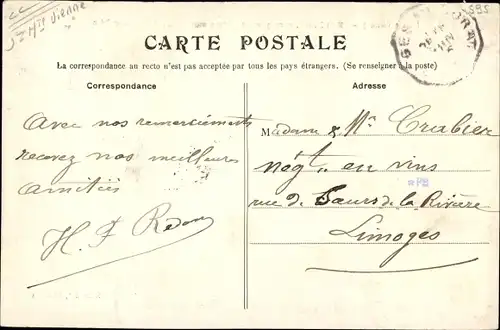 Hte Vienne
595
CARTE POSTALE
La correspondance au recto n'est pas acceptée par tous les pays étrangers. (Se renseigner à la poste)
Correspondance
Adresse
Avec nos remerciements
recevez nos meilleures
amitiés
H. F Redon
Madame & Mr Crabier
négt en vins
rue d. Sœurs de la Rivière
Limoges